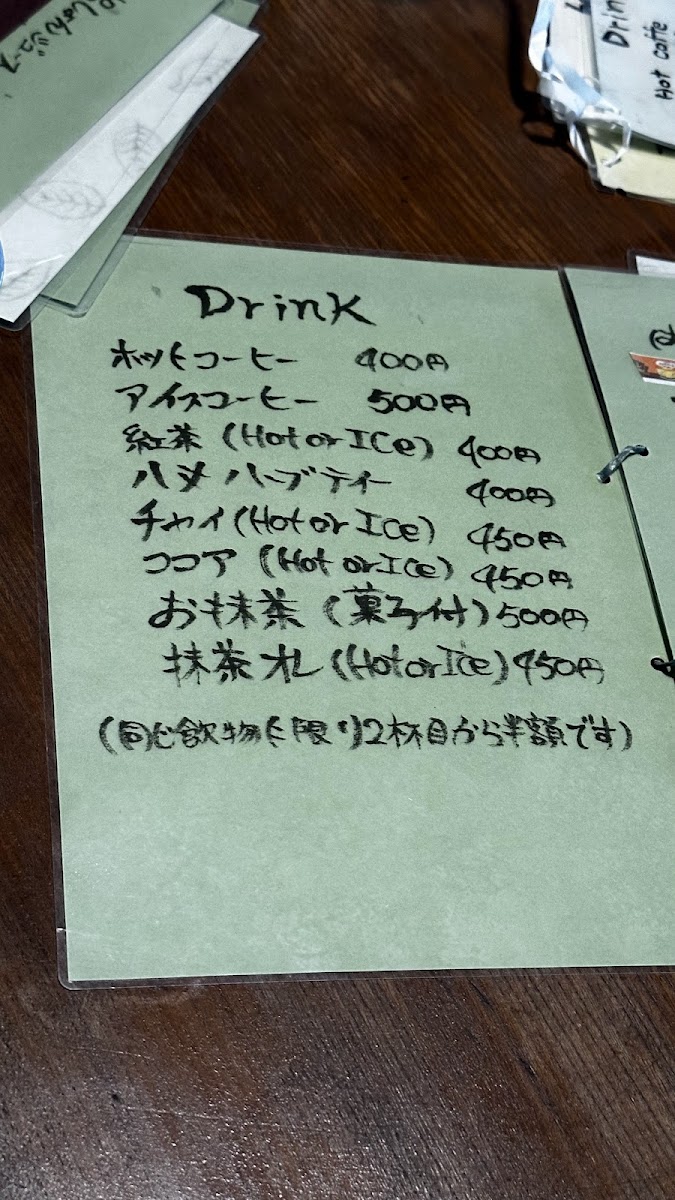 じゅんジュース
Drin
Hot Caffe
Drink
ホットコーヒー 400円
アイスコーヒー 500円
紅茶 (Hot or ICe) 400円
ハメハーブティー 400円
チャイ (Hot or ICe) 450円
ココア (Hot or ICe) 450円
お抹茶 (菓子付) 500円
抹茶オレ (Hot or Ice) 450円
(同じ飲物に限り2杯目から半額です)